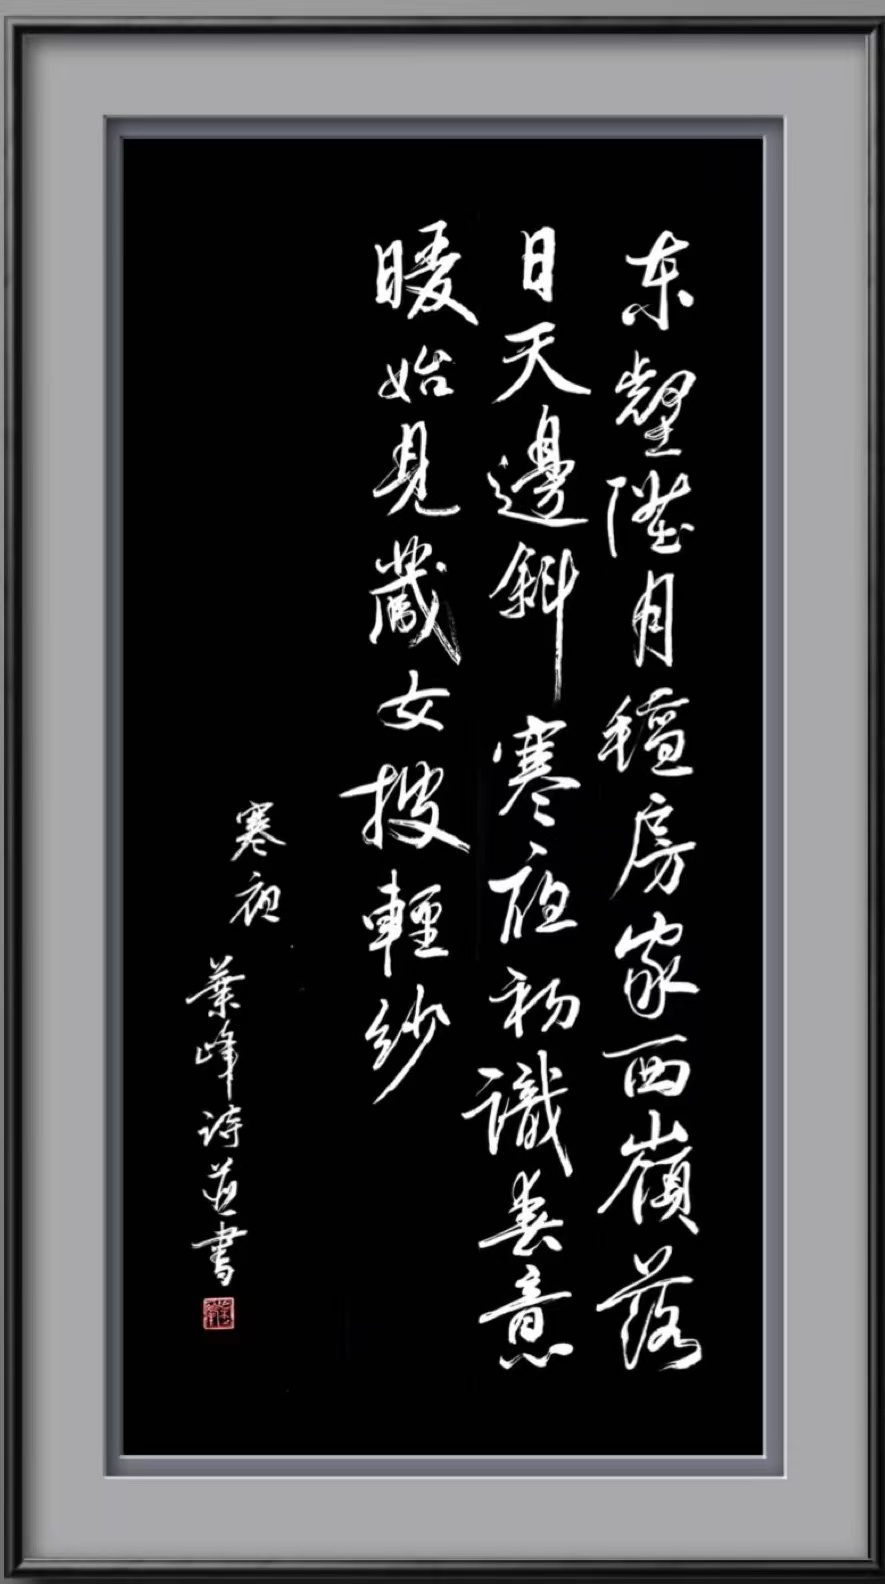 东壑陸月穜房家西嶺落
日天邊斜寒夜初識春意
暖始見藏女搜輕紗
寒夜
葉峰詩並書